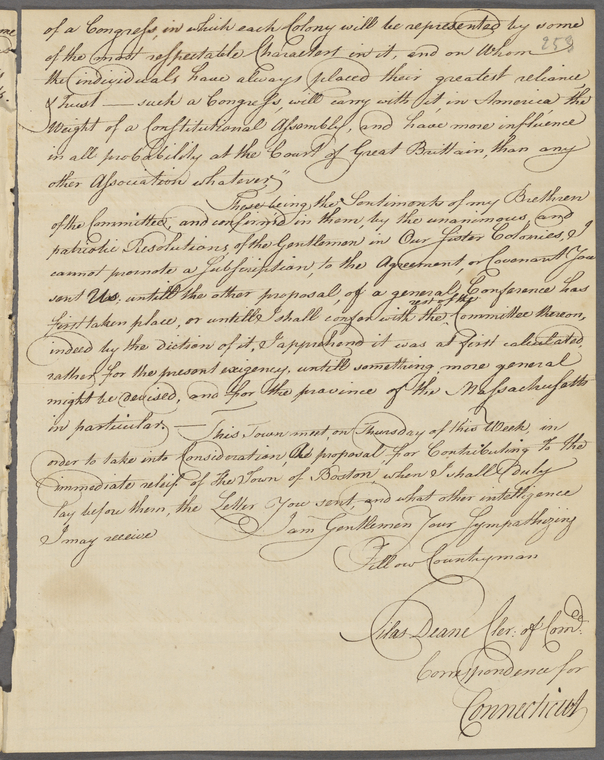 of a Congress, in which each Colony will be represented by some
258
of the most respectable Characters in it, and on Whom
the individuals have always placed their greatest reliance
& trust — such a Congress, will carry with it in America the
Weight of a Constitutional Assembly, and have more influence
in all probability at the Court of Great Brittain, than any
other Association whatever,"
These being the Sentiments of my Brethren
of the Committee, and confirm'd in them, by the unanimous, and
patriotic Resolutions of the Gentlemen in Our Sister Colonies, I
cannot promote a Subscription, to the Agreement, or Covenant You
sent Us, untill the other proposal, of a general Conference has
first taken place, or untill I shall confer with the rest of the Committee thereon,
indeed by the diction of it, I apprehend it was at first calculated,
rather for the present exigency, untill something more general
might be devised, and for the province of the Massachusetts
in particular — This Town meet, on Thursday of this Week, in
order to take into Consideration, the proposal for Contributing to the
immediate relief of the Town of Boston, when I shall Duly
lay before them, the Letter You sent, and what other intelligence
I may receive I am Gentlemen Your Sympathizing
Fellow Countryman
Silas Deane Cler: of Comtee
Correspondence for
Connecticut